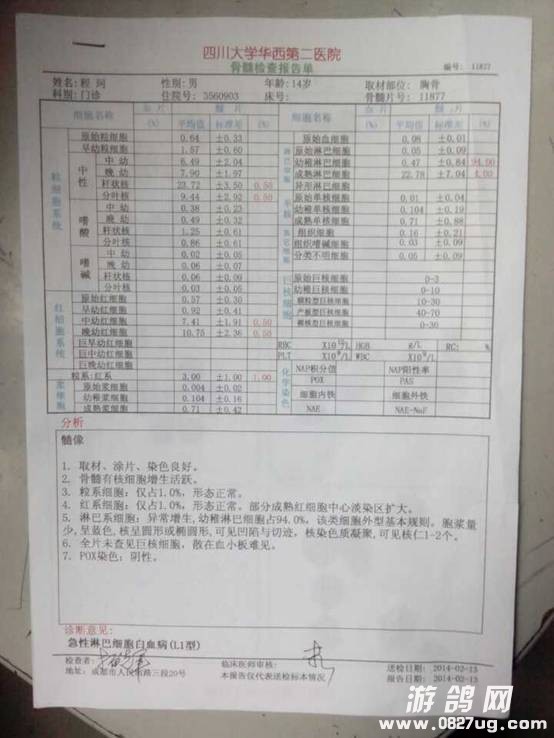 四川大学华西第二医院
骨髓检查报告单
编号: 11877
姓名: 程 珂 性别: 男 年龄: 14岁 取材部位: 胸骨
科别: 门诊 住院号: 3560903 床号: 骨髓片号: 11877
细胞名称 (%) 平均值 标准差 (%) 细胞名称 (%) 平均值 标准差 (%)
粒细胞系统
原始粒细胞 0.64 ±0.33
早幼粒细胞 1.57 ±0.60
中性
中幼 6.49 ±2.04
晚幼 7.90 ±1.97
杆状核 23.72 ±3.50 0.50
分叶核 9.44 ±2.92 0.50
嗜酸
中幼 0.38 ±0.23
晚幼 0.49 ±0.32
杆状核 1.25 ±0.61
分叶核 0.86 ±0.61
嗜碱
中幼 0.02 ±0.05
晚幼 0.06 ±0.07
杆状核 0.06 ±0.09
分叶核 0.03 ±0.05
红细胞系统
原始红细胞 0.57 ±0.30
早幼红细胞 0.92 ±0.41
中幼红细胞 7.41 ±1.91 0.50
晚幼红细胞 10.75 ±2.36 0.50
巨早幼红细胞
巨中幼红细胞
巨晚幼红细胞
粒系:红系 3.00 ±1.00 1.00
浆细胞
原始浆细胞 0.004 ±0.02
幼稚浆细胞 0.104 ±0.16
成熟浆细胞 0.71 ±0.42
原始血细胞 0.08 ±0.01
原始淋巴细胞 0.05 ±0.09
幼稚淋巴细胞 0.47 ±0.84 94.00
成熟淋巴细胞 22.78 ±7.04 4.00
异形淋巴细胞
原始单核细胞 0.01 ±0.04
幼稚单核细胞 0.104 ±0.19
成熟单核细胞 0.71 ±0.88
组织细胞 0.16 ±0.21
组织嗜碱细胞 0.03 ±0.09
分类不明细胞 0.05 ±0.09
巨核细胞
原始巨核细胞 0-3
幼稚巨核细胞 0-10
颗粒型巨核细胞 10-30
产板型巨核细胞 40-70
裸核型巨核细胞 0-30
RBC X10¹²/L HGB g/L RC: %
PLT X10⁹/L WBC X10⁹/L
化学染色
NAP积分值 NAP阳性率
POX PAS
细胞内铁 细胞外铁
NAE NAE-NaF
分析
髓像
1. 取材、涂片、染色良好。
2. 骨髓有核细胞增生活跃。
3. 粒系细胞: 仅占1.0%, 形态正常。
4. 红系细胞: 仅占1.0%, 形态正常。部分成熟红细胞中心淡染区扩大。
5. 淋巴系细胞: 异常增生,幼稚淋巴细胞占94.0%, 该类细胞外型基本规则。胞浆量
少,呈蓝色,核呈圆形或椭圆形,可见凹陷与切迹, 核染色质凝聚,可见核仁1-2个。
6. 全片未查见巨核细胞, 散在血小板难见。
7. POX染色: 阴性。
诊断意见:
急性淋巴细胞白血病(L1型)
检查者: 临床医师审核: 送检日期: 2014-02-13
地址: 成都市人民南路三段20号 本报告仅代表送检标本情况 报告日期: 2014-02-13
游鸽网
www.0827ug.com